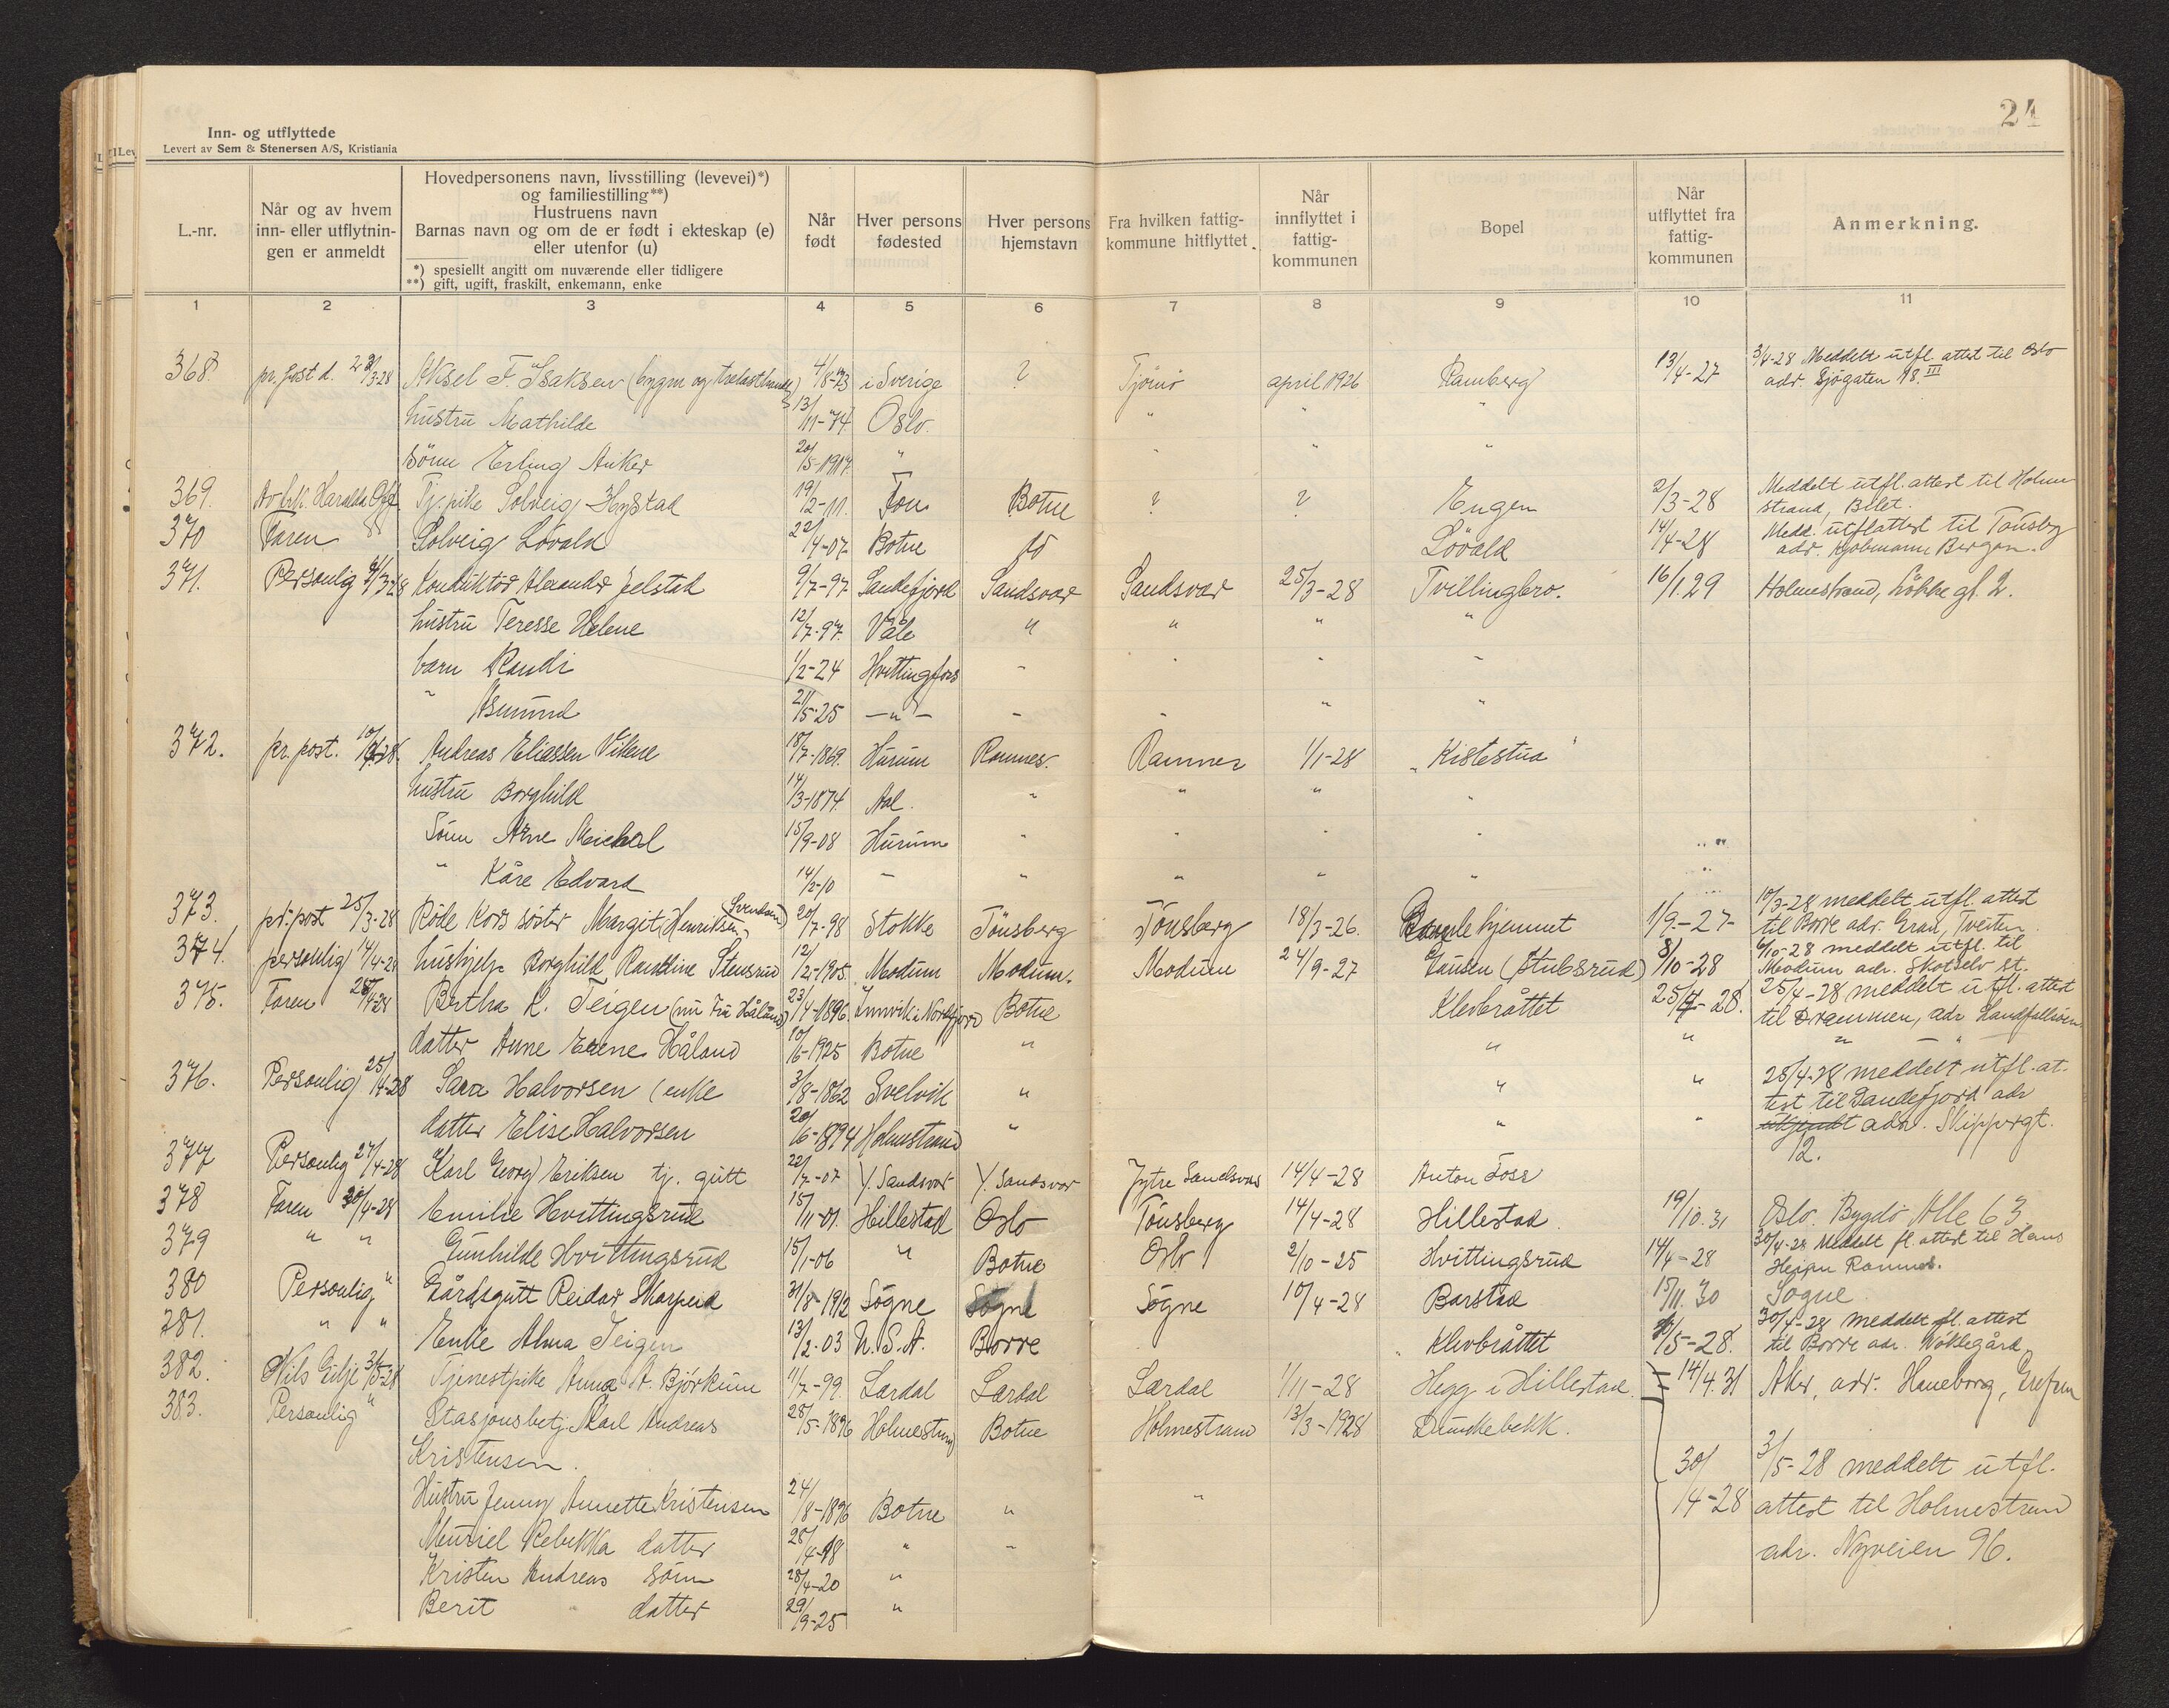 24
Inn- og utflyttede
Levert av Sem & Stenersen A/S, Kristiania
L.-nr.
Når og av hvem inn- eller utflytnin- gen er anmeldt
Hovedpersonens navn, livsstilling (levevei)*)
og familiestilling**)
Hustruens navn
Barnas navn og om de er født i ekteskap (e)
eller utenfor (u)
*) spesiellt angitt om nuværende eller tidligere
**) gift, ugift, fraskilt, enkemann, enke
Når født
Hver persons fødested
Hver persons hjemstavn
Fra hvilken fattig- kommune hitflyttet
Når innflyttet i fattig- kommunen
Bopel
Når utflyttet fra fattig- kommunen
Anmerkning.
1 2 3 4 5 6 7 8 9 10 11
368. pr. post d. Aksel F. Isaksen (bygm og trelasthandl) 4/8-73 i Sverige ? Tjömö april 1926 Ramberg 13/4-27 3/4-28 Meddelt utfl. attest til Oslo
adr. Sjögaten 18.III
hustru Mathilde 13/11-74 Oslo. " "
sönn Erling Anker 20/5-1917. " " " "
369. Tj. pike Solveig Hystad 19/2-11. Fon Botne ? ? Engen 2/3-28 Meddelt utfl. attest til Holme
strand, Bilet.
370 Faren Solveig Lövald 22/4-07 Botne do Lövald 14/4-28 Medd. utflattest til Tönsbg
adr. Bergan.
371. Personlig Konduktör Alexander Jelstad 9/7-97 Sandefjord Sandsvær Sandsvær 25/3-28 Tvillingbro. 16/1 29 Holmestrand, Lökke gt. 2.
hustru Teresse Helene 12/7-97. Våle " " " "
barn Randi 1/2-24 Hvittingfoss " " " "
" Asmund 21/5-25 —"— " " " "
372. pr. post. Andreas Eliassen Vikene 18/7-1869. Hurum Ramnes. Ramnes 1/1-28 "Kistestua"
hustru Borghild 14/3-1874. Aal. " " " "
Sönn Arne Michael 15/9-08 Hurum " " " "
" Kåre Edvard 14/2-10 " " " " "
373. pr. post 25/3-28 Röde Kors söster Margit (Henriksen) Svendsen 20/7-98 Stokke Tönsberg Tönsberg 18/3-26. Gamlehjemmet 1/9-27 10/3-28 meddelt utfl. attest
til Borre adr. Gran, Tveiten
374. personlig 14/4-28 hushjelp Borghild Randine Stensrud 12/12-1905. Modum Modum. Modum 24/9-27 Gausen (Stubsrud) 8/10-28 6/10-28 meddelt utfl. til
Modum adr. Skotselv st.
375. Faren Bertha K. Teigen (nu Fru Håland) 23/4-1896. Innvik i Nordfjord Botne Klevbråttet 25/4-28. 25/4-28 meddelt utfl. attest
til Drammen, adr Landfallsöen
datter Anne Erene Håland 10/6-1925 Botne " " " " — "
376. Personlig 25/4-28 Sara Halvorsen (enke 3/8-1862 Svelvik " " " 25/4-28 meddelt utfl. at-
test til Sandefjord adr
datter Elise Halvorsen 20/6-1894 Holmestrand " " " adr. Skippergt.
12.
377 Personlig 27/4-28 Karl Georg Eriksen tj. gutt 22/7-07 Y. Sandsvær Y. Sandsvær Jytre Sandsvær 14/4-28 Anton Foss
378 Faren 30/4-28 Emilie Hvittingsrud 15/11-01. Hillestad Oslo Tönsberg 14/4-28 Hillestad. 19/10.31 Oslo. Bygdö Alle 63
379 " " Gunhilde Hvittingsrud 15/1-06 " Botne Oslo 2/10-25 Hvittingsrud 14/4-28 30/4-28 Meddelt fl. attest til Hans
Ramnes.
380 Personlig " Gårdsgutt Reidar Skarpeid 31/8-1912 Sögne Sögne Sögne 10/4-28 Barstad 15/11.30 Sogne
381. " " Enke Alma Teigen 13/2-03 U.S.A. Borre Klevbråttet 1/5-28. 30/4-28 meddelt fl. attest
til Borre adr. Woldegård
382. Nils Gilje 3/5-28 Tjenestpike Anna A. Björkum 11/7-99. Lærdal Lærdal Lærdal 1/11-28 Hegg i Hillestad. 14/4.31 Aker, adr. Haneborg, Grefsen
383. Personlig " Stasjonsbetj. Karl Andreas 28/5-1896 Holmestrand Botne Holmestrand 13/3-1928 Dunkebekk.
Kristensen. 30/4-28 3/5-28 meddelt utfl.
Hustru Jenny Annette Kristensen 24/8-1896 Botne " " attest til Holmestrand
Muriel Rebekka datter 28/4-18 " " adr. Nyveien 96.
Kristen Andreas sönn 28/4-20 "
Berit datter 29/9-25 "